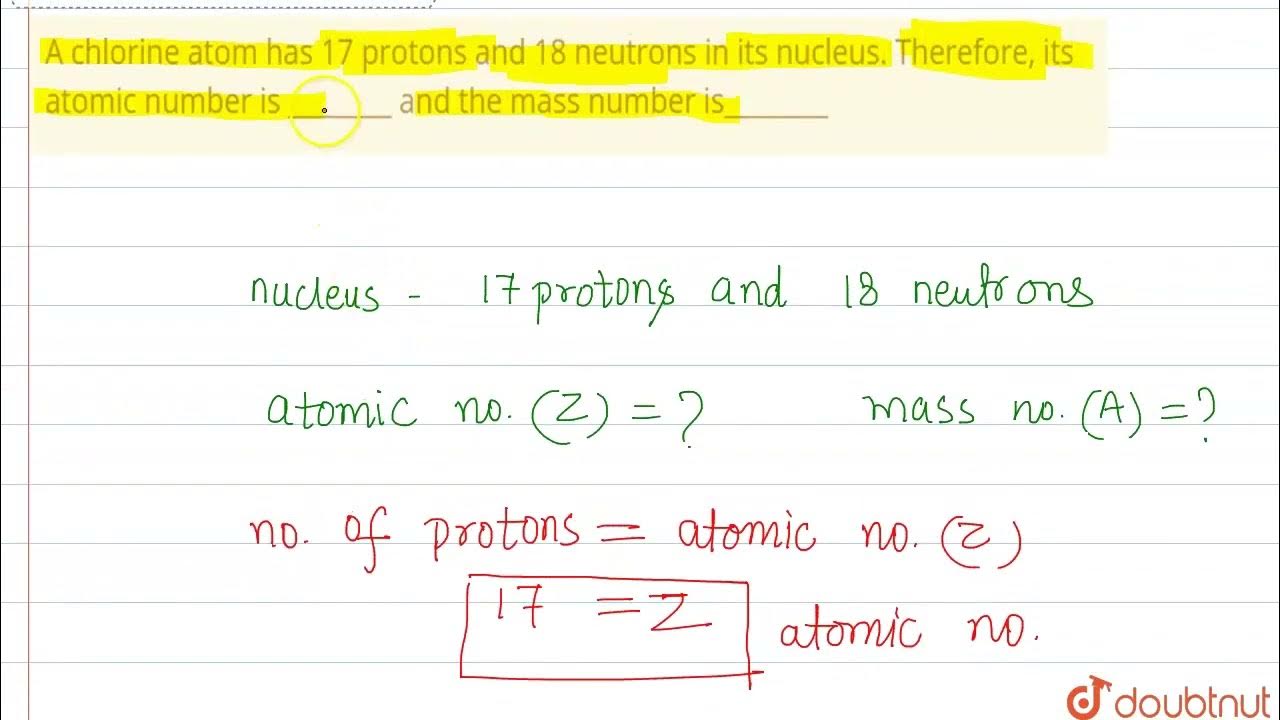 A chlorine atom has 17 protons and 18 neutrons in its nucleus. Therefore, its
atomic number is ________ and the mass number is________
nucleus - 17 protons and 18 neutrons
atomic no. (Z) = ? mass no. (A) = ?
no. of protons = atomic no. (Z)
17 = Z atomic no.
doubtnut